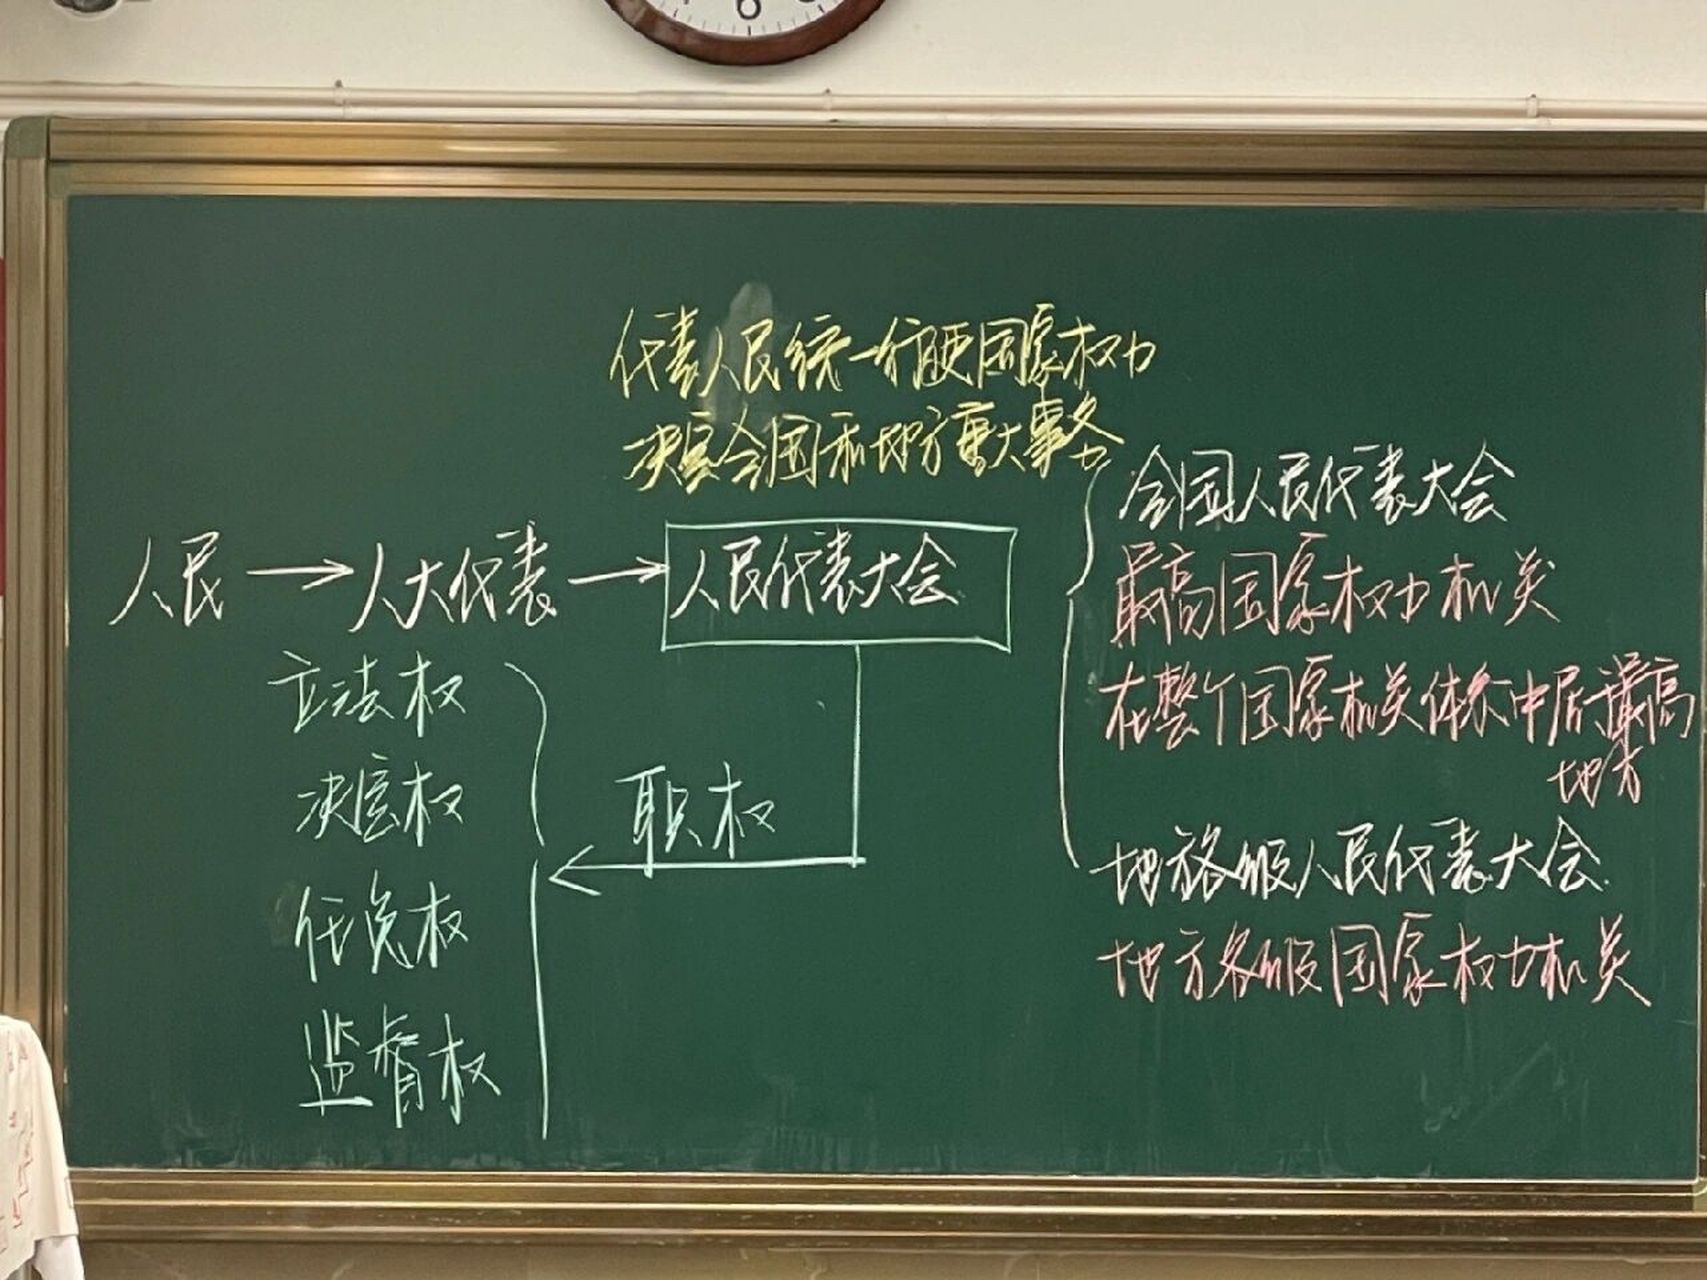 6
代表人民统一行使国家权力
决定全国和地方重大事务
人民→人大代表→人民代表大会
立法权
决定权
任免权
监督权
职权
全国人民代表大会
最高国家权力机关
在整个国家机关体系中居最高
地方
地方各级人民代表大会
地方各级国家权力机关